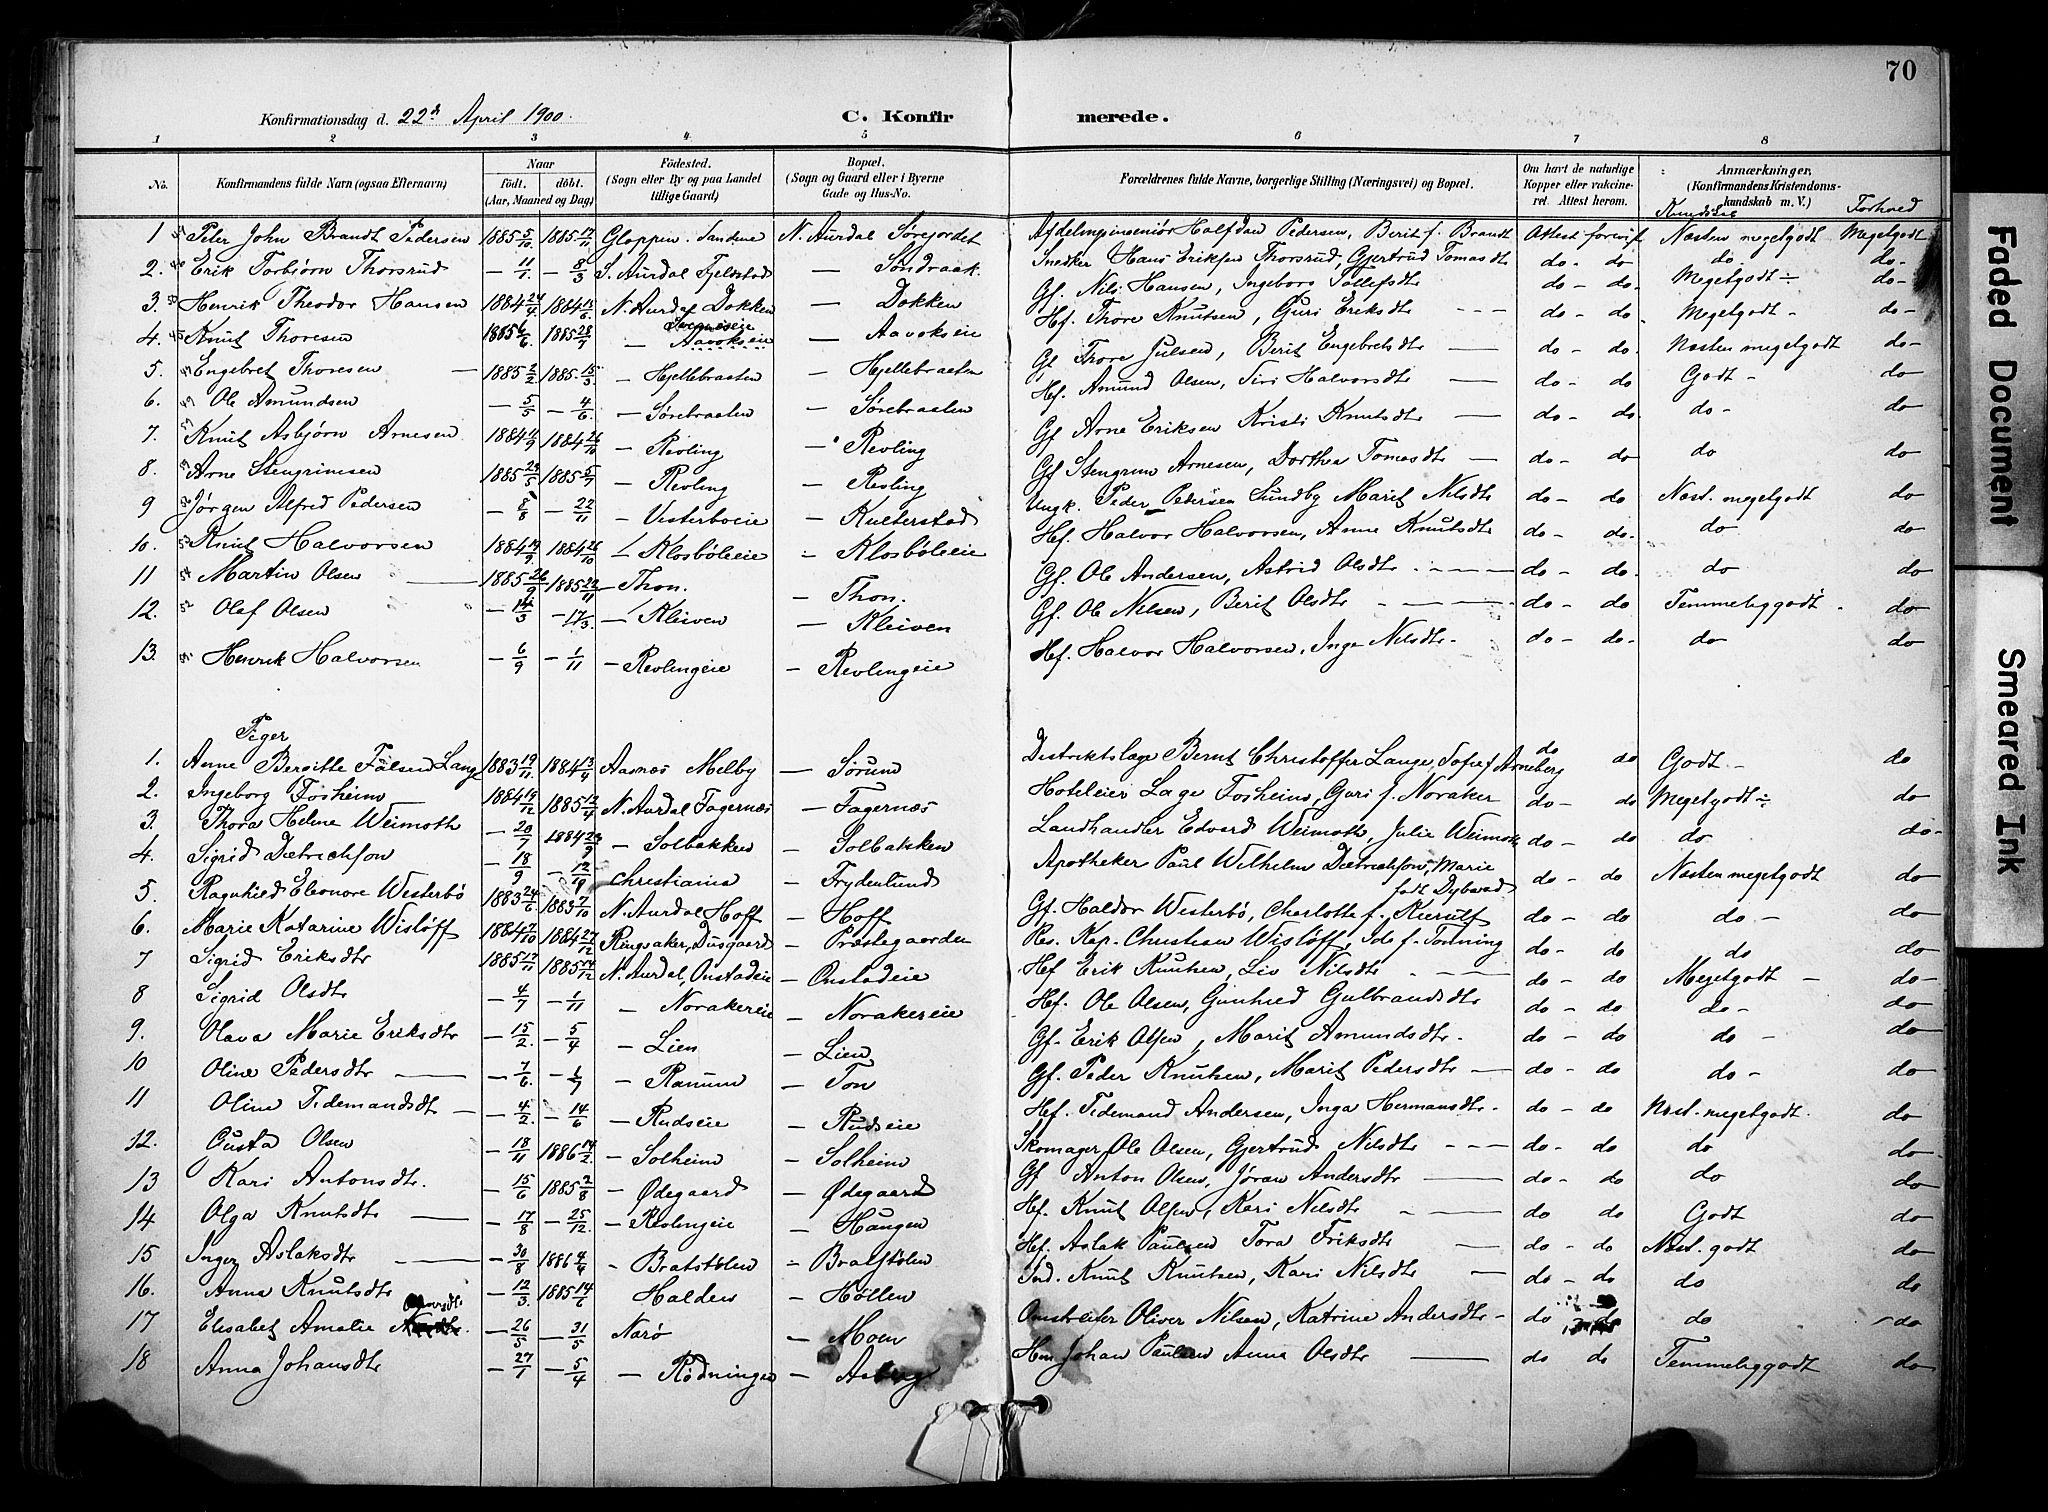 70
Konfirmationsdag d. 22d April 1900. C. Konfirmerede.
1 2 3 4 5 6 7 8
No. Konfirmandens fulde Navn (ogsaa Efternavn) Naar födt. döbt. (Aar, Maaned og Dag) Födested. (Sogn eller By og paa Landet tillige Gaard) Bopæl. (Sogn og Gaard eller i Byerne Gade og Hus-No. Forældrenes fulde Navne, borgerlige Stilling (Næringsvei) og Bopæl. Om havt de naturlige Kopper eller vakcineret. Attest herom. Anmærkninger, (Konfirmandens Kristendomskundskab m. V.) Kundskab Forhold
1 Peter John Brandt Pedersen 1885 5/10 1885 17/11 Gloppen. Sandene N. Aurdal Sørejordet Afdelingsingeniør Halfdan Pedersen, Berit f. Brandt Attest forevist Næsten megetgodt Megetgodt
2. Erik Torbjørn Thorsrud — 11/1 — 8/3 S. Aurdal Fjeldstad — Søndraak. Snedker Hans Eriksen Thorsrud, Gjertrud Tomasdt do - do do do-
3. Henrik Theodor Hansen 1884 24/4 1884 15/6 N. Aurdal Dokken — Dokken Gf. Nils Hansen, Ingeborg Tollefsdt do - do- Megetgodt ÷ do-
4. Knut Thoresen 1885 6/6 1885 28/7 — Aavokseie — Aavokseie Hf. Thore Knutsen, Guri Eriksdt --- do - do. Megetgodt - do-
5. Engebret Thoresen — 1885 2/2 1885 15/3 — Hjellebraaten — Hjellebraaten Gf Thore Julsen, Berit Engebretsdt — do - do. Næsten megetgodt do-
6. Ole Amundsen — 5/5 — 4/6 — Sørebraaten — Sørebraaten Hf. Amund Olsen, Siri Halvorsdt — do - do Godt - do
7. Knut Asbjørn Arnesen 1884 11/9 1884 26/10 — Revling — Revling Gf Arne Eriksen Kristi Knutsdt — do - do. do - do
8. Arne Stengrimsen 1885 29/5 1885 5/7 — Revling — Revling Gf Stengrim Arnesen, Dorthea Tomasdt — do - do do do
9 Jørgen Alfred Pedersen — 8/8 — 22/11 — Vesterboeie — Kulterstad Ungk. Peder Pedersen Sundby Marit Nilsdt do - do Næst. megetgodt do
10. Knut Halvorsen 1884 19/9 1884 26/10 — Klosbøleeie — Klosbøleeie Hf. Halvor Halvorsen, Anne Knutsdt do - do. do do
11 Martin Olsen — 1885 26/9 1885 22/11 — Thon. — Thon. Gf. Ole Andersen, Astrid Olsdt. --- do - do. do do
12. Olaf Olsen — 14/3 — 17/3. — Kleiven — Kleiven Gf. Ole Nilsen, Berit Olsdt - — do - do Temmeliggodt - do
13. Henrik Halvorsen — 6/9 — 1/11 — Revlingeie — Revlingeie Hf. Halvor Halvorsen, Inge Nilsdt. do - do- do do
Piger
1. Anne Bergitte Falsen Lange 1883 19/11 1884 13/4 Aasnæs Melby — Sørum Distriktslæge Bernt Christoffer Lange, Sofie f Arneberg do do Godt - do
2. Ingeborg Fosheim 1884 19/12 1885 12/4 N. Aurdal Fagernæs — Fagernæs Hoteleier Lage Fosheim, Guri f. Noraker do - do Megetgodt ÷ do
3. Thora Helene Weimoth — 20/7 1884 29/9 — Solbakken — Solbakken Landhandler Edvard Weimoth, Julie Weimoth do - do do do-
4. Sigrid Dietrichson — 18/9 — Christiania — Frydenlund Apotheker Paul Wilhelm Dietrichson, Marie født Dybwad do - do Næsten megetgodt do
5. Ragnhild Eleonore Westerbö 1883 24/6 1883 7/10 N. Aurdal Hoff — Hoff Gf. Haldor Westerbö, Charlotte f. Kierulf do - do do - do
6. Marie Katarine Wislöff 1884 7/10 1884 27/12 Ringsaker, Disgaard — Præstegaarden Res. Kap. Christian Wislöff, Ida f. Tonning do - do do do
7 Sigrid Eriksdt 1885 17/11 1885 14/12 N. Aurdal, Onstadeie — Onstadeie Hf Erik Knutsen, Liv Nilsdt --- do - do Megetgodt - do-
8 Sigrid Olsdt — 4/7 — 1/11 — Norakereie — Norakereie Hf. Ole Olsen, Gunhild Gulbrandsdt do - do do - do
9. Olava Marie Eriksdt — 15/2. — 5/4 — Lien — Lien Gf. Erik Olsen, Marit Amundsdt. do - do do - do
10 Oline Pedersdt — — 7/6. — 1/7 — Ranum — Ton Gf. Peder Knutsen, Marit Pedersdt — do - do do - do
11 Oline Tidemandsdt — — 4/2. — 14/6 — Rudseie — Rudseie Hf. Tidemand Andersen, Inga Hermansdt. do - do Næst. megetgodt. do
12. Gusta Olsen — 18/11 1886 14/2. — Solheim — Solheim Skomager, Ole Olsen, Gjertrud Nilsdt --- do - do do do-
13 Kari Antonsdt. — 15/6 1885 2/8 — Ødegaard — Ødegaard Gf Anton Olsen, Jøran Andersdt — do - do do do
14 Olga Knutsdt — — 17/8 — 25/12. — Revlingeie — Haugen Hf. Knut Olsen, Kari Nilsdt - — do do Godt do
15 Inger Aslaksdt — — 30/8 1886 4/4 — Bratstølen — Bratstølen Hf. Aslak Paulsen Tora Eriksdt — do - do Næst. godt do
16. Anna Knutsdt — 12/3. 1885 14/6 Halden — Høllen Ind. Knut Knutsen, Kari Nilsdt — do - do do do
17 Elisabet Amalie — 26/5 — 31/5 Narø — Moen Omstreifer Oliver Nilsen, Katrine Andersdt - do do do - do
18 Anna Johansdt — 27/1 — 5/4 — Rödningen — Johan Paulsen Anna Olsdt — do do Temmeliggodt do
Faded Document
Smeared Ink